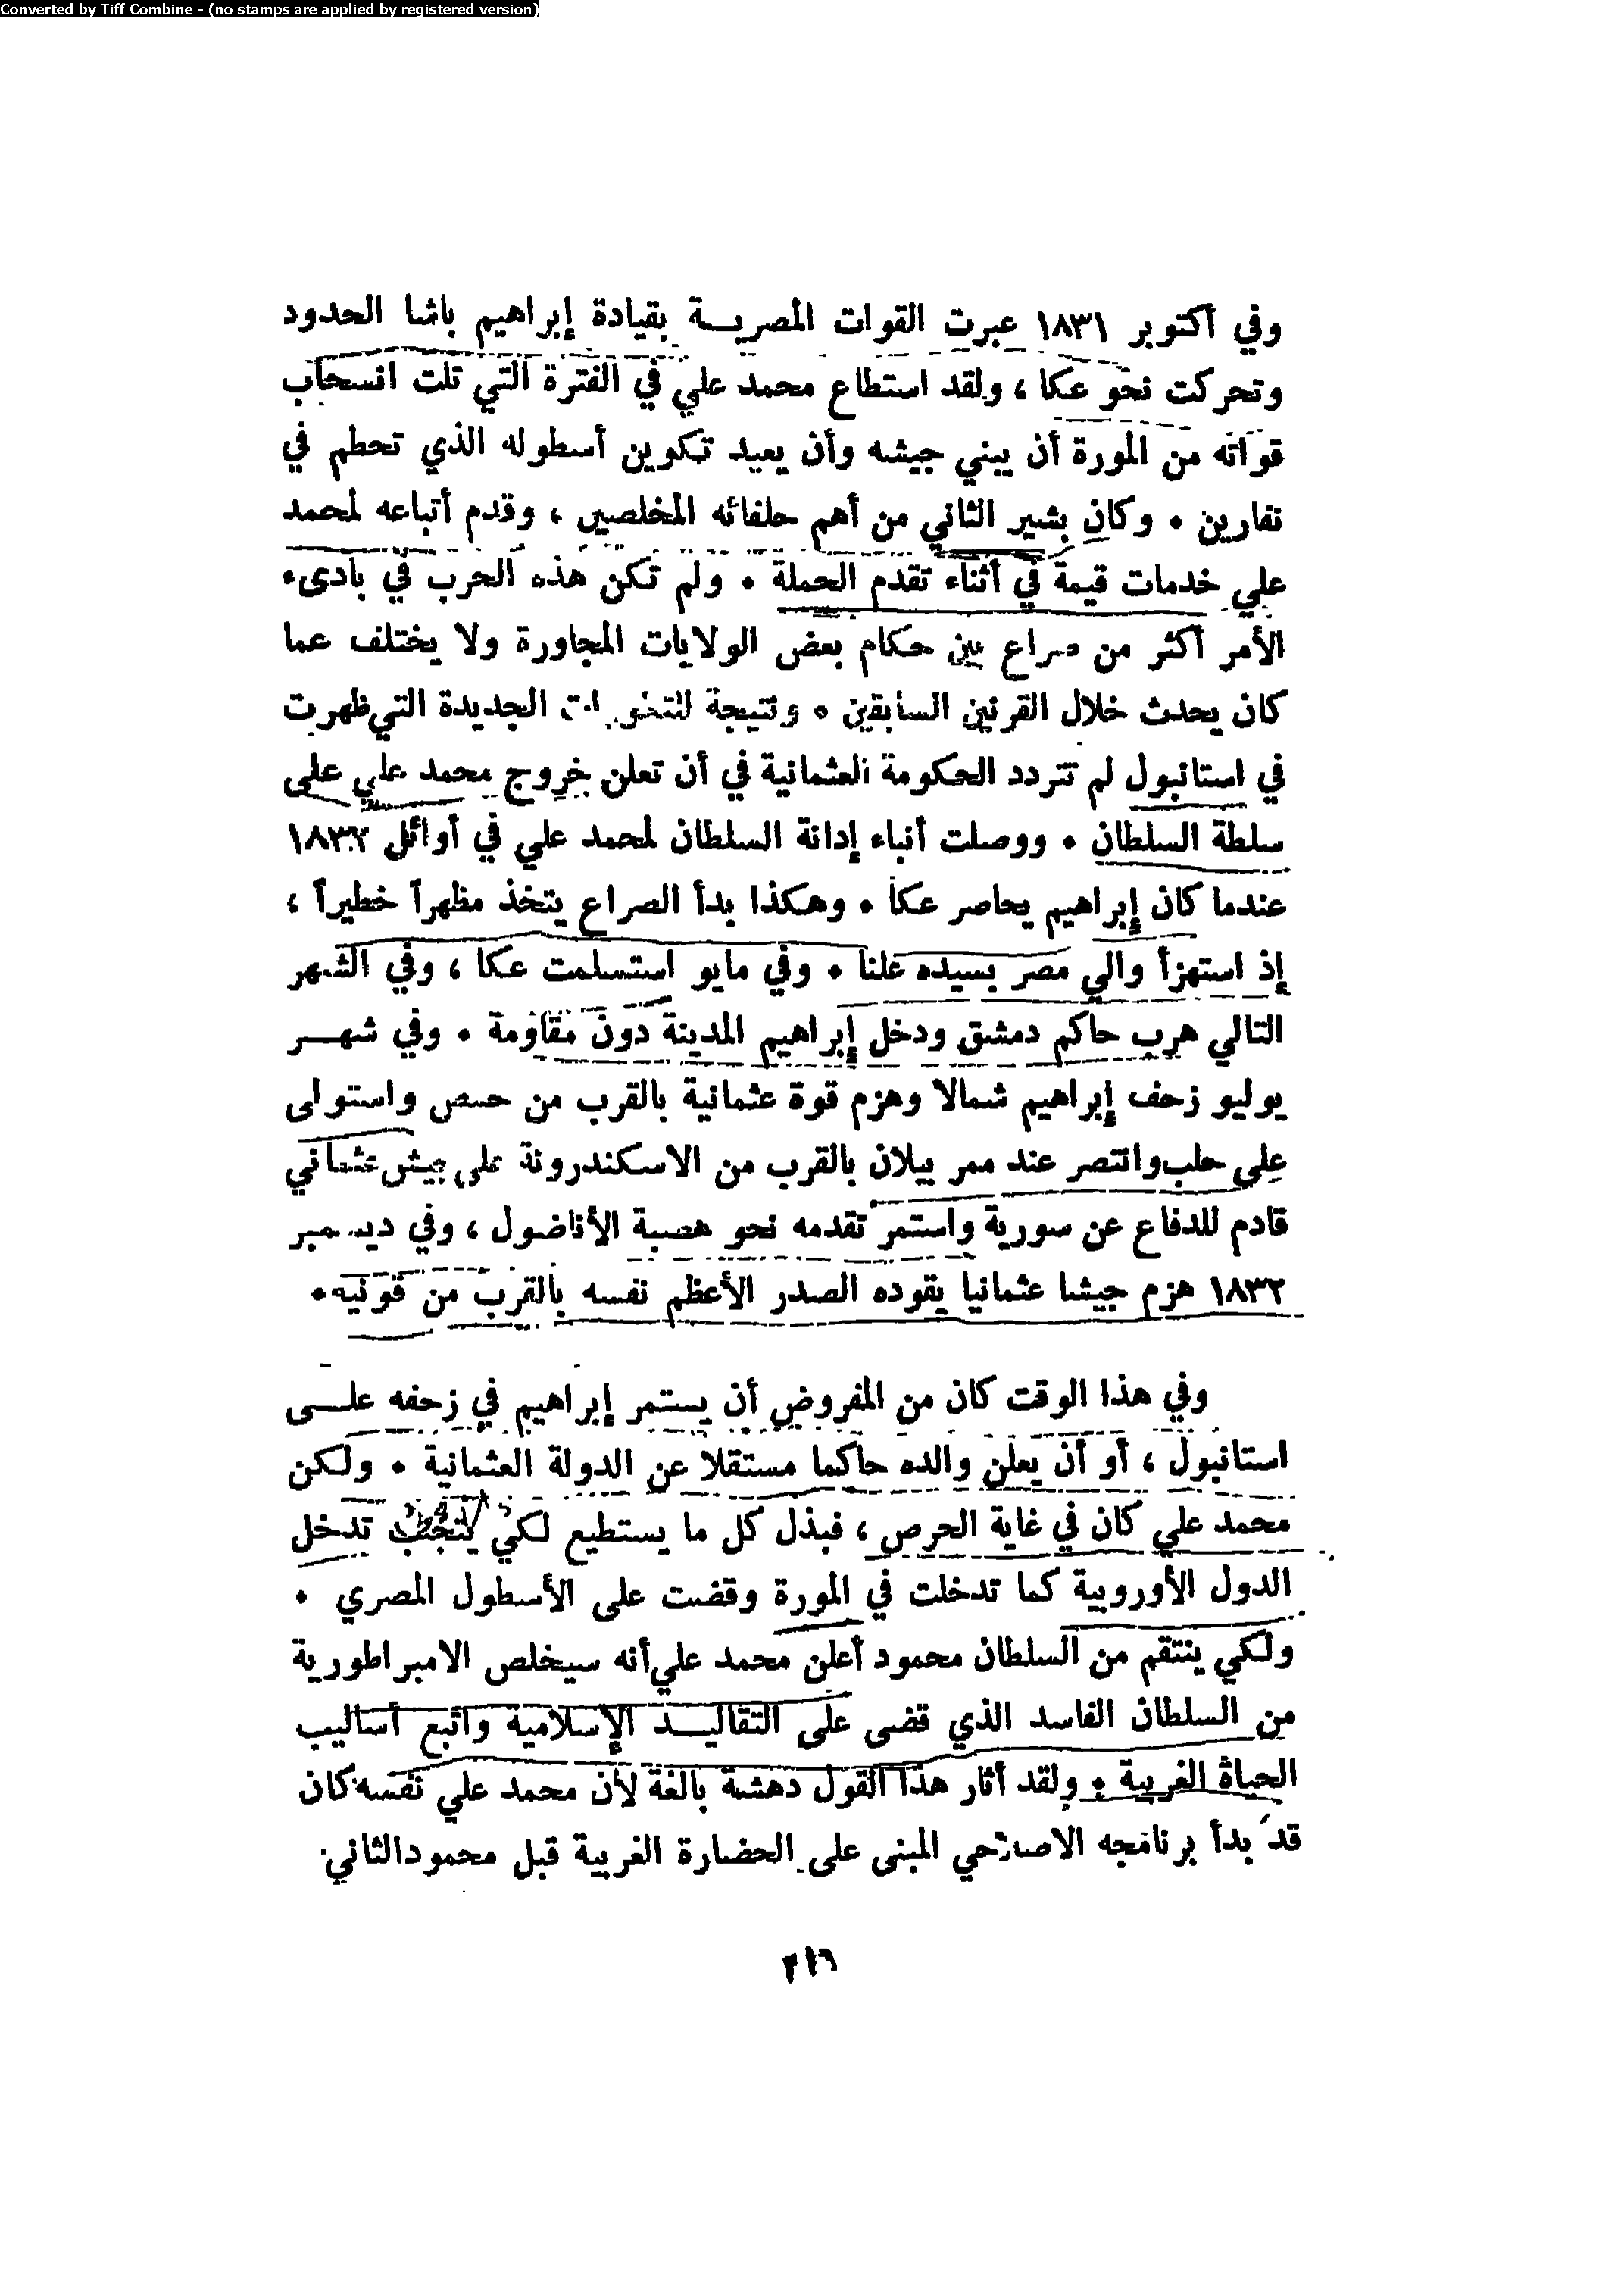 Converted by Tiff Combine - (no stamps are applied by registered version)
وفي أكتوبر ١٨٣١ عبرت القوات المصريـــة بقيادة إبراهيم باشا الحدود
وتحركت نحو عكا ، ولقد استطاع محمد علي في الفترة التي تلت انسحاب
قواته من المورة أن يبني جيشه وأن يعيد تكوين أسطوله الذي تحطم في
نفارين . وكان بشير الثاني من أهم حلفائه المخلصين ، وقدم أتباعه لمحمد
علي خدمات قيمة في أثناء تقدم الحملة . ولم تكن هذه الحرب في بادىء
الأمر أكثر من صراع بين حكام بعض الولايات المجاورة ولا يختلف عما
كان يحدث خلال القرنين السابقين . ونتيجة الجديدة التي ظهرت
في استانبول لم تتردد الحكومة العثمانية في أن تعلن خروج محمد علي على
سلطة السلطان . ووصلت أنباء إدانة السلطان لمحمد علي في أوائل ١٨٣٢
عندما كان إبراهيم يحاصر عكا . وهكذا بدأ الصراع يتخذ مظهراً خطيراً ،
إذ استهزأ والي مصر بسيده علنا . وفي مايو استسلمت عكا ، وفي الشهر
التالي هرب حاكم دمشق ودخل إبراهيم المدينة دون مقاومة . وفي شهـــر
يوليو زحف إبراهيم شمالا وهزم قوة عثمانية بالقرب من حمص واستولى
على حلب وانتصر عند ممر بيلان بالقرب من الاسكندرونة على جيش عثماني
قادم للدفاع عن سورية واستمر تقدمه نحو هضبة الأناضول ، وفي ديسمبر
١٨٣٢ هزم جيشا عثمانيا يقوده الصدر الأعظم نفسه بالقرب من قونيه .
وفي هذا الوقت كان من المفروض أن يستمر إبراهيم في زحفه علـــى
استانبول ، أو أن يعلن والده حاكما مستقلا عن الدولة العثمانية . ولكن
محمد علي كان في غاية الحرص ، فبذل كل ما يستطيع لكي يتجنب تدخل
الدول الأوروبية كما تدخلت في المورة وقضت على الأسطول المصري .
ولكي ينتقم من السلطان محمود أعلن محمد علي أنه سيخلص الامبراطورية
من السلطان الفاسد الذي قضى على التقاليـــد الإسلامية واتبع أساليب
الحياة الغربية . ولقد أثار هذا القول دهشة بالغة لأن محمد علي نفسه كان
قد بدأ برنامجه الاصلاحي المبنى على الحضارة الغربية قبل محمود الثاني
٣١٦